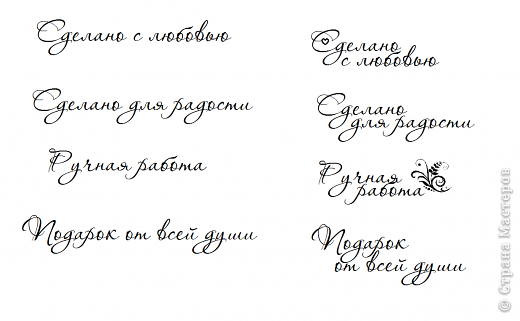 Сделано с любовью
Сделано для радости
Ручная работа
Подарок от всей души
Сделано
с любовью
Сделано
для радости
Ручная
работа
Подарок
от всей души
© Страна Мастеров